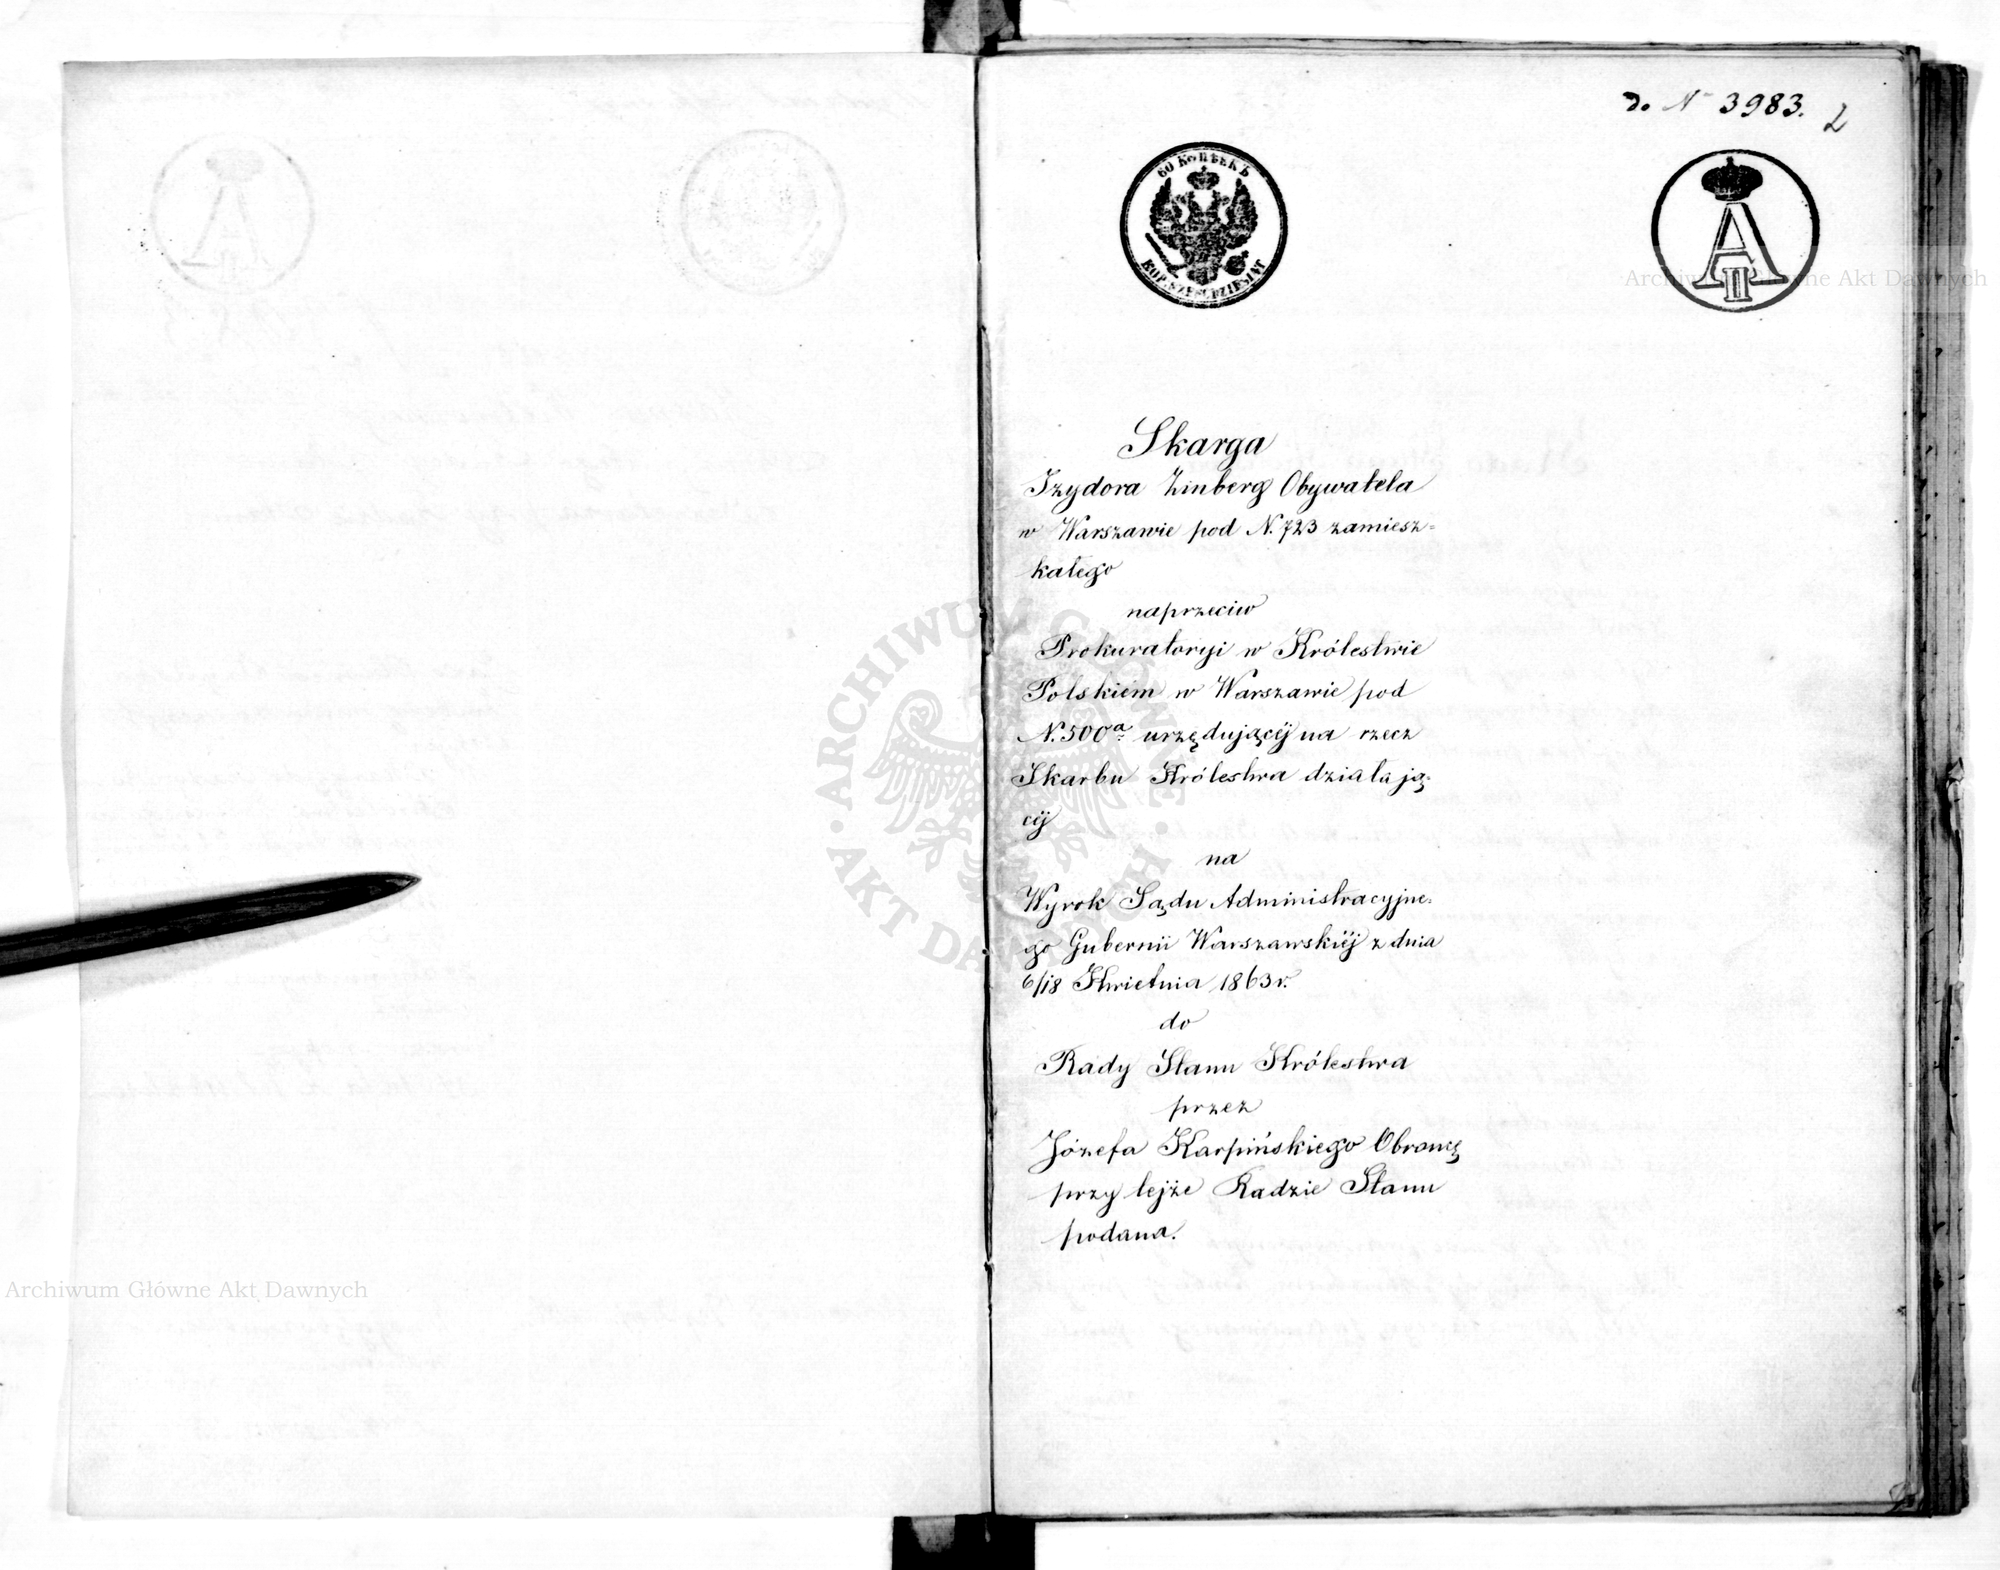 do No 3983.
2
60 КОПѢЕКЪ
KOP. SZEŚĆDZIESIĄT
A II
Skarga
Izydora Zinberg Obywatela
w Warszawie pod N. 723 zamiesz-
kałego
naprzeciw
Prokuratoryi w Królestwie
Polskiém w Warszawie pod
N. 500a urzędującéj na rzecz
Skarbu Królestwa działają-
céj
na
Wyrok Sądu Administracyjne-
go Gubernii Warszawskiéj z dnia
6/18 Kwietnia 1863 r.
do
Rady Stanu Królestwa
przez
Józefa Karpińskiego Obrońcę
przy tejże Radzie Stanu
podana.
Archiwum Główne Akt Dawnych
ARCHIWUM GŁÓWNE
AKT DAWNYCH
Archiwum Główne Akt Dawnych